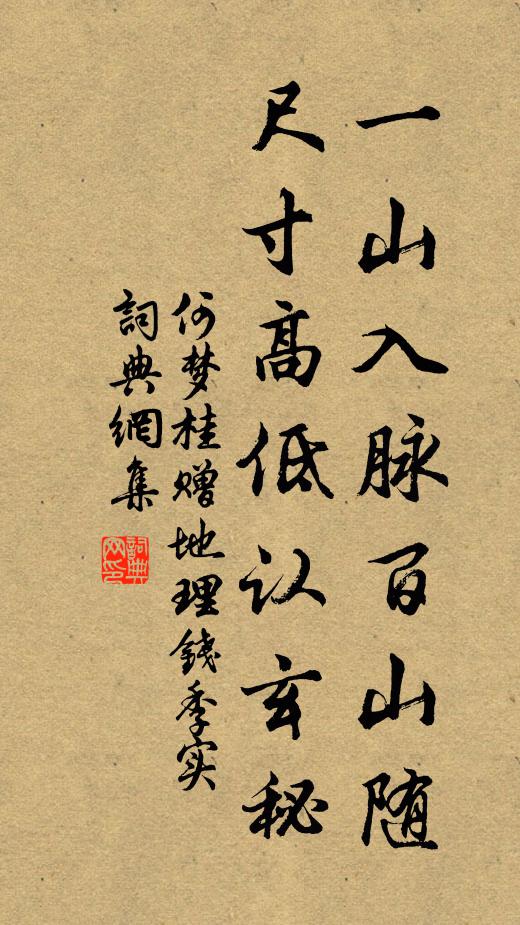 一山入脉百山随
尺寸高低认玄秘
何梦桂赠地理錢季实
詞典網集
詞典网印